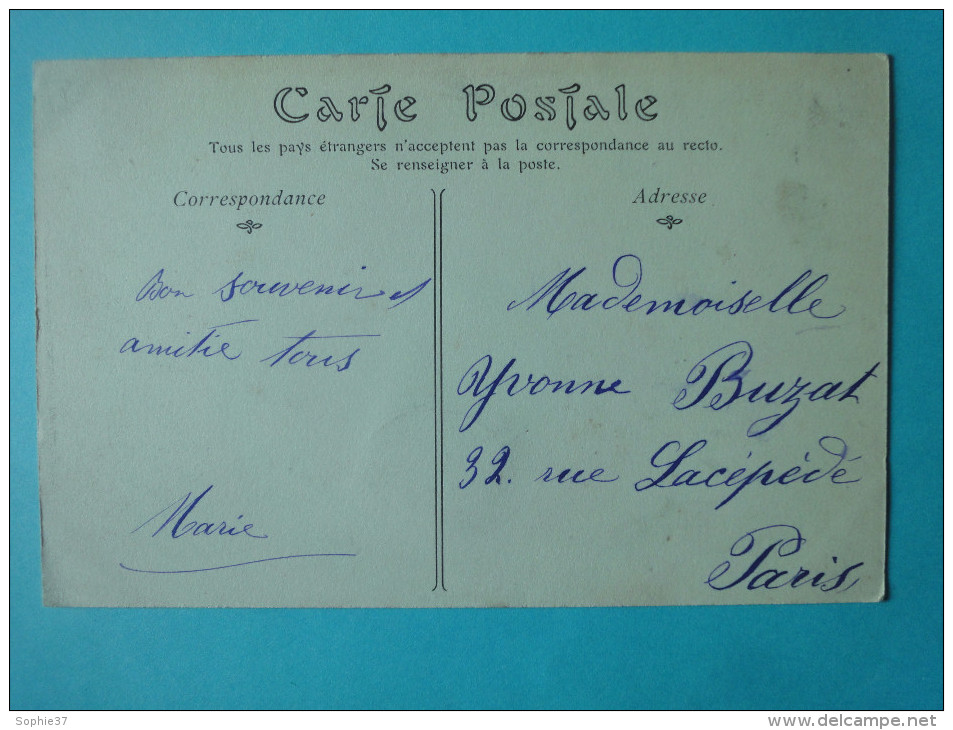 Carte Postale
Tous les pays étrangers n'acceptent pas la correspondance au recto.
Se renseigner à la poste.
Correspondance
Bon souvenir et
amitie tous
Marie
Adresse
Mademoiselle
Yvonne Buzat
32. rue Lacépédé
Paris
Sophie37
www.delcampe.net